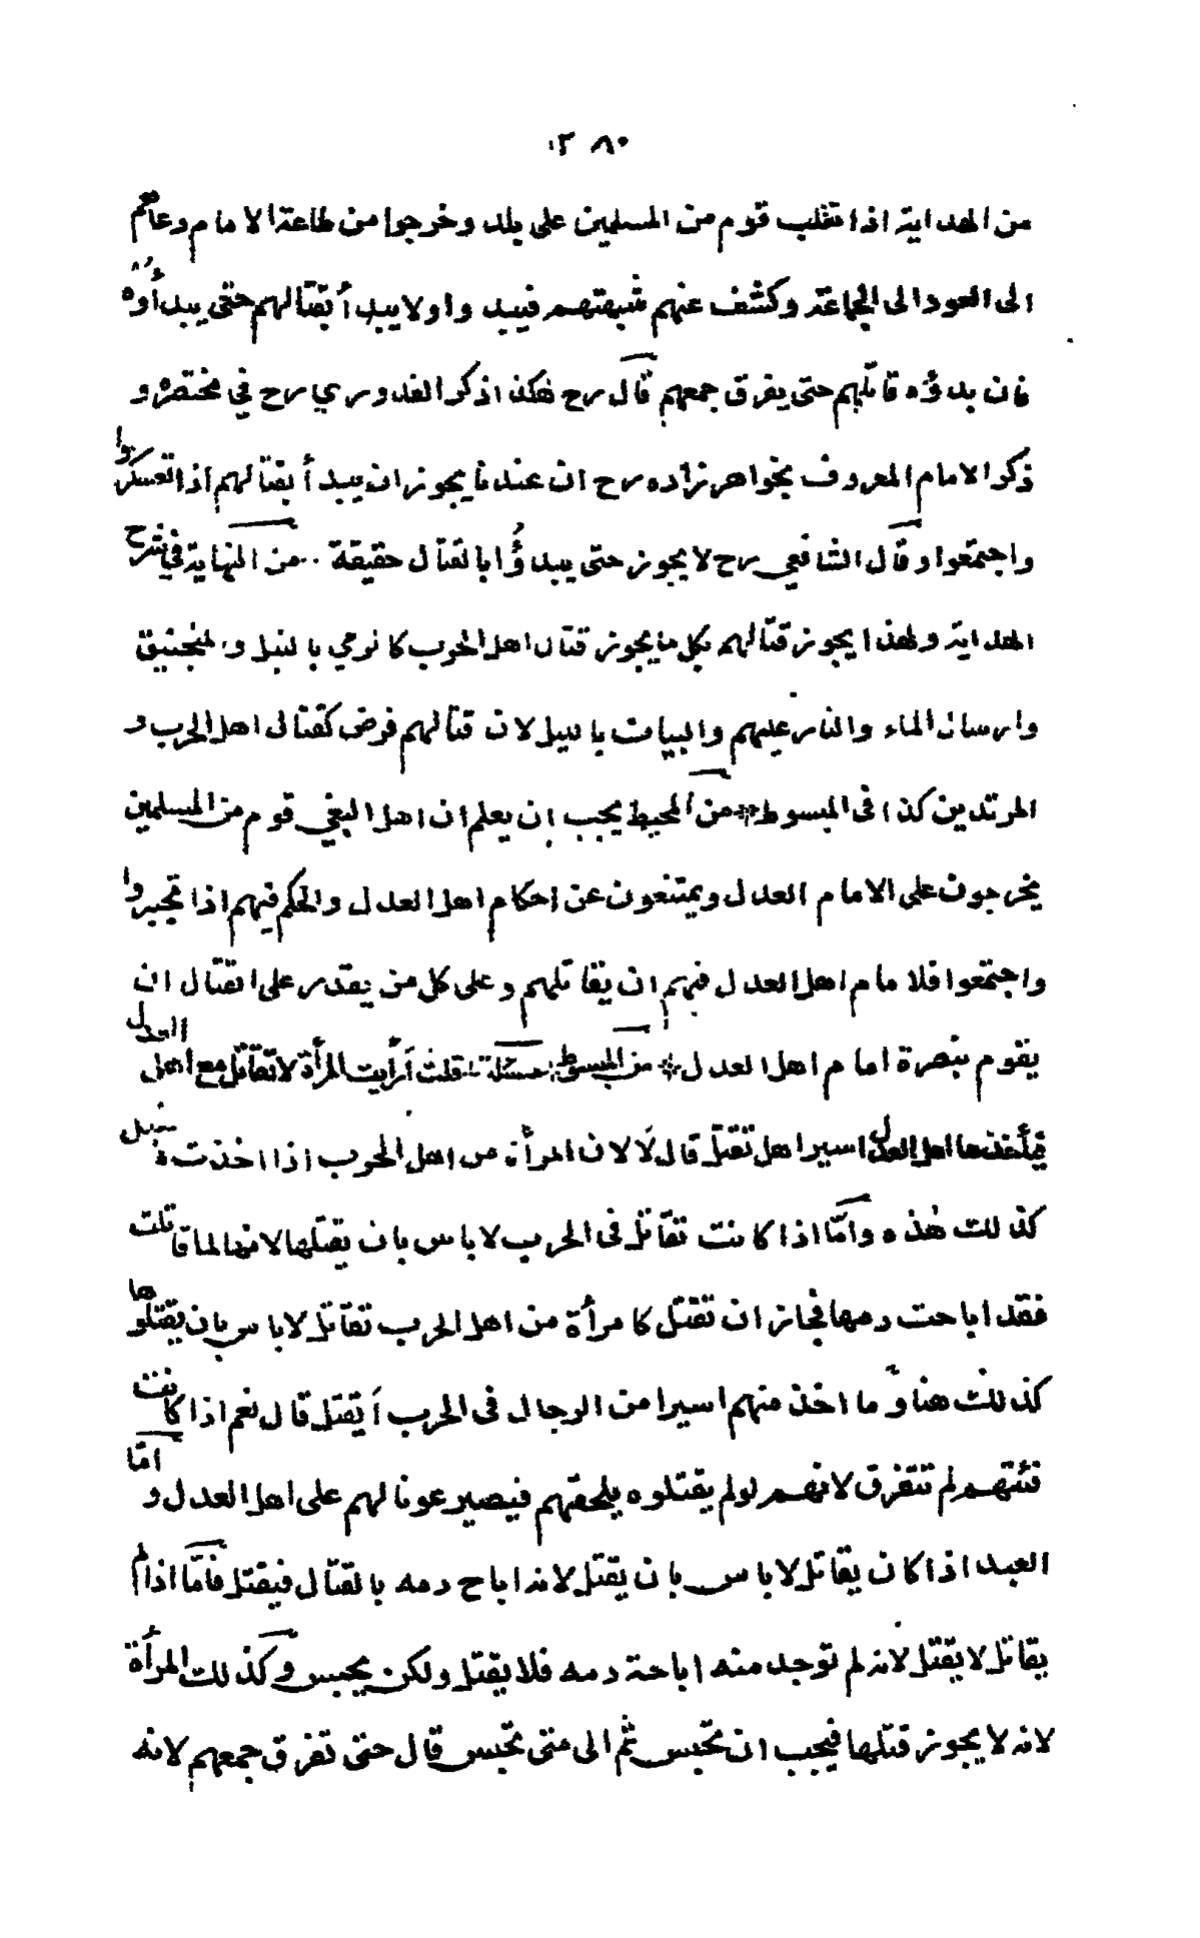 ٣٨٠
من الهداية اذا تغلب قوم من المسلمين على بلد وخرجوا من طاعة الامام وعاهم
الى العود الى الجماعة وكشف عنهم شبهتهم فيبد واولا يبدأ بقتالهم حتى يبدأوه
فان بدؤه قاتلهم حتى يفرق جمعهم قال رح هكذا ذكر القدوري رح في مختصره و
ذكر الامام المعروف بخواهرزاده رح ان عندنا يجوز ان يبدأ بقتالهم اذا تعسكروا
واجتمعوا وقال الشافعي رح لا يجوز حتى يبدؤا بالقتال حقيقة من النهاية في شرح
الهداية ولهذا يجوز قتالهم بكل ما يجوز قتال اهل الحرب كالرمي بالنبل والمنجنيق
وارسال الماء والنار عليهم والبيات بالليل لان قتالهم فرض كقتال اهل الحرب و
المرتدين كذا في المبسوط من المحيط يجب ان يعلم ان اهل البغي قوم من المسلمين
يخرجون على الامام العدل ويمتنعون عن احكام اهل العدل والحكم فيهم اذا تجبروا
واجتمعوا فلامام اهل العدل فيهم ان يقاتلهم وعلى كل من يقدر على القتال ان
يقوم بنصرة امام اهل العدل من المبسوط مسئلة قلت أرأيت المرأة لا تقاتل مع اهل العدل
فيأخذها اهل العدل اسيرا هل تقتل قال لا لان المرأة من اهل الحرب اذا اخذت
كذلك هذه واما اذا كانت تقاتل في الحرب لا باس بان يقتلها لانها لما قاتلت
فقد اباحت دمها فجاز ان تقتل كامرأة من اهل الحرب تقاتل لا باس بان يقتلوها
كذلك هنا وما اخذ منهم اسيرا من الرجال في الحرب أيقتل قال نعم اذا كانت
فئتهم لم تتفرق لانهم لو لم يقتلوه يلحقهم فيصير عونا لهم على اهل العدل و امّا
العبد اذا كان يقاتل لا باس بان يقتل لانه اباح دمه بالقتال فيقتل فامّا اذا لم
يقاتل لا يقتل لانه لم توجد منه اباحة دمه فلا يقتل ولكن يحبس وكذلك المرأة
لانه لا يجوز قتلها فيجب ان تحبس ثم الى متى تحبس قال حتى تفرق جمعهم لانه